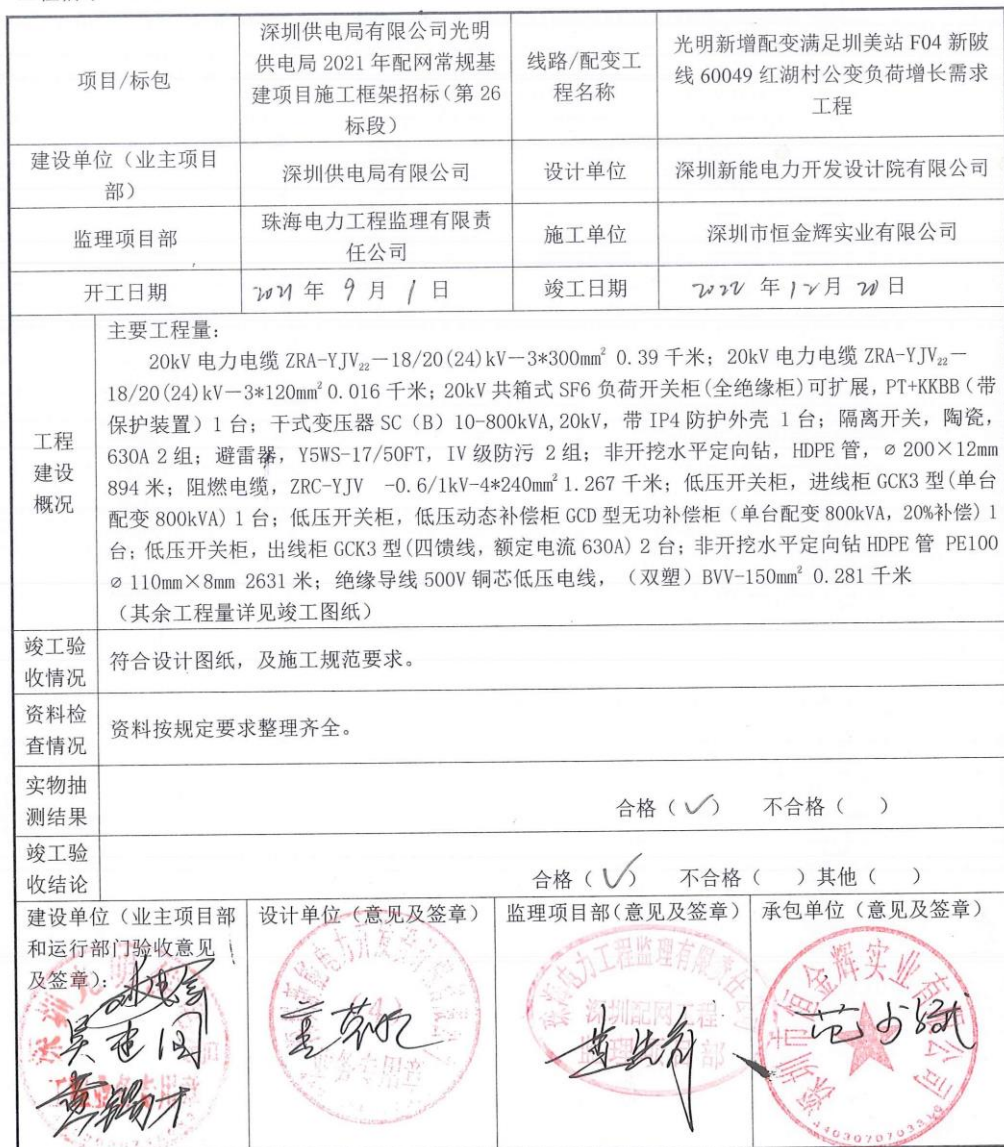 项目/标包
深圳供电局有限公司光明
供电局 2021 年配网常规基
建项目施工框架招标（第 26
标段）
线路/配变工
程名称
光明新增配变满足圳美站 F04 新陂
线 60049 红湖村公变负荷增长需求
工程
建设单位（业主项目
部）
深圳供电局有限公司
设计单位
深圳新能电力开发设计院有限公司
监理项目部
珠海电力工程监理有限责
任公司
施工单位
深圳市恒金辉实业有限公司
开工日期
2021 年 9 月 1 日
竣工日期
2022 年 12 月 20 日
工程
建设
概况
主要工程量：
20kV 电力电缆 ZRA-YJV₂₂－18/20(24)kV－3*300mm² 0.39 千米；20kV 电力电缆 ZRA-YJV₂₂－
18/20(24)kV－3*120mm² 0.016 千米；20kV 共箱式 SF6 负荷开关柜(全绝缘柜)可扩展，PT+KKBB（带
保护装置）1 台；干式变压器 SC（B）10-800kVA,20kV，带 IP4 防护外壳 1 台；隔离开关，陶瓷，
630A 2 组；避雷器，Y5WS-17/50FT，IV 级防污 2 组；非开挖水平定向钻，HDPE 管，⌀ 200×12mm
894 米；阻燃电缆，ZRC-YJV -0.6/1kV-4*240mm² 1.267 千米；低压开关柜，进线柜 GCK3 型(单台
配变 800kVA) 1 台；低压开关柜，低压动态补偿柜 GCD 型无功补偿柜（单台配变 800kVA，20%补偿）1
台；低压开关柜，出线柜 GCK3 型(四馈线，额定电流 630A) 2 台；非开挖水平定向钻 HDPE 管 PE100
⌀ 110mm×8mm 2631 米；绝缘导线 500V 铜芯低压电线，（双塑）BVV-150mm² 0.281 千米
（其余工程量详见竣工图纸）
竣工验
收情况
符合设计图纸，及施工规范要求。
资料检
查情况
资料按规定要求整理齐全。
实物抽
测结果
合格（✓） 不合格（ ）
竣工验
收结论
合格（✓） 不合格（ ）其他（ ）
建设单位（业主项目部
和运行部门验收意见
及签章）：
设计单位（意见及签章）
监理项目部（意见及签章）
珠海电力工程监理有限责任公司
深圳配网工程
监理项目部
承包单位（意见及签章）
深圳市恒金辉实业有限公司